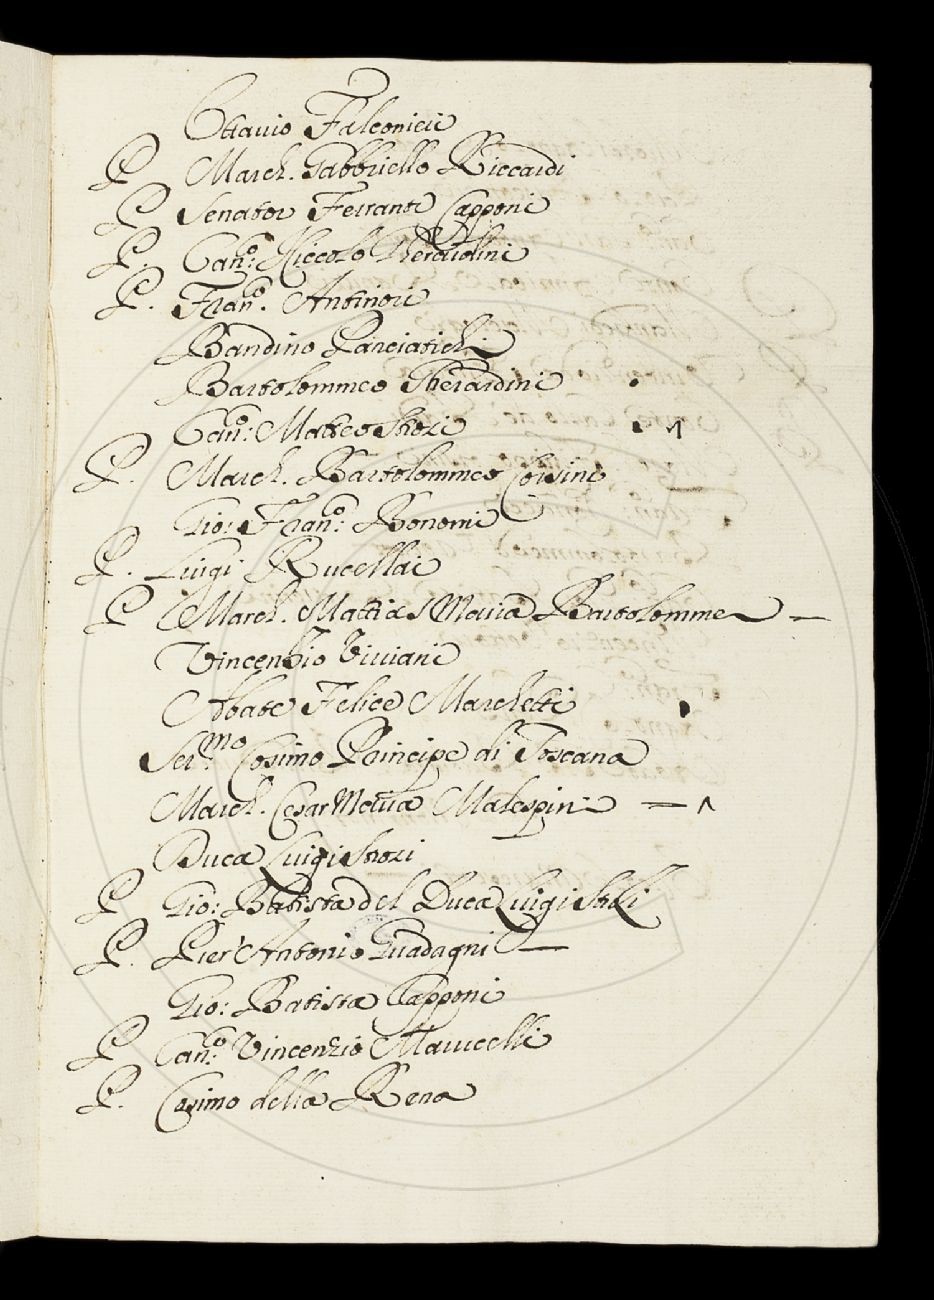 Ottavio Falconieri
P. March. Gabbriello Riccardi
P. Senator Ferrante Capponi
P. Can.co Niccolo Gherardini
P. Fran.co Antinori
Bandino Panciatichi
Bartolommeo Gherardini
Can.co Matteo Strozi
P. March. Bartolommeo Corsini
Gio: Fran.co Bonomi
P. Luigi Rucellai
P March. Mattias Maria Bartolommei —
Vincenzio Viviani
Abate Felice Marchetti
Ser.mo Cosimo Principe di Toscana
March. Cesar Maria Malespini —
Duca Luigi Strozi
P Gio: Batista del Duca Luigi Strozi
P. Pier Antonio Guadagni —
Gio: Batista Capponi
P Can.co Vincenzio Marucelli
P. Cosimo della Rena